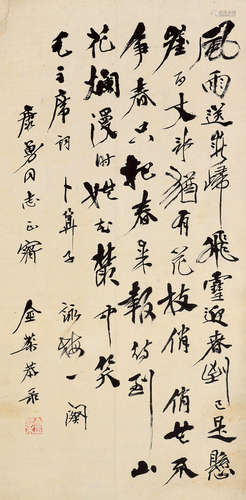 風雨送春歸飛雪迎春到已是懸
崖百丈冰猶有花枝俏俏也不
爭春只把春來報待到山
花爛漫時她在叢中笑
毛主席詞 卜算子 詠梅一闋
康勇同志正 金 恭